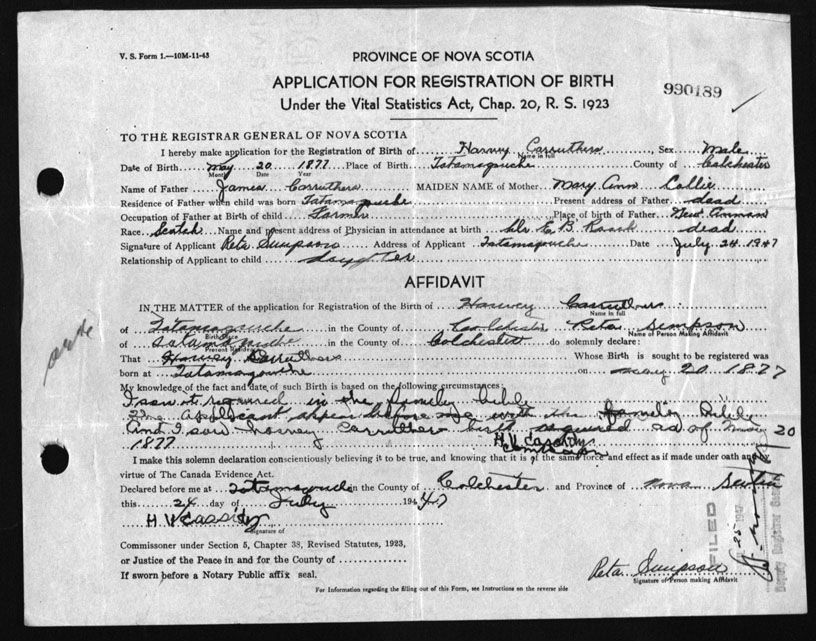 V. S. Form 1.—10M-11-43
PROVINCE OF NOVA SCOTIA
APPLICATION FOR REGISTRATION OF BIRTH
Under the Vital Statistics Act, Chap. 20, R. S. 1923
990189
TO THE REGISTRAR GENERAL OF NOVA SCOTIA
I hereby make application for the Registration of Birth of Harvey Carruthers, Sex Male
Name in full
Date of Birth May 20 1877 Place of Birth Tatamagouche County of Colchester
Month Date Year
Name of Father James Carruthers MAIDEN NAME of Mother Mary Ann Collie
Residence of Father when child was born Tatamagouche Present address of Father dead
Occupation of Father at Birth of child Farmer Place of birth of Father New Annan
Race Scotch Name and present address of Physician in attendance at birth Dr. E. B. Roach dead
Signature of Applicant Reta Simpson Address of Applicant Tatamagouche Date July 24 1947
Relationship of Applicant to child daughter
AFFIDAVIT
IN THE MATTER of the application for Registration of the Birth of Harvey Carruthers
Name in full
of Tatamagouche in the County of Colchester Reta Simpson
Birth Place Name of Person Making Affidavit
of Tatamagouche in the County of Colchester do solemnly declare:
Present Residence
That Harvey Carruthers Whose Birth is sought to be registered was
born at Tatamagouche on May 20 1877
My knowledge of the fact and date of such Birth is based on the following circumstances:
I saw it in the family bible
The Applicant before me with the family Bible
And I saw harvey Carruthers birth as of May 20
1877 H. V. Cassidy
I make this solemn declaration conscientiously believing it to be true, and knowing that it is of the same force and effect as if made under oath and by
virtue of The Canada Evidence Act.
Declared before me at Tatamagouche in the County of Colchester and Province of Nova Scotia
this 24 day of July 1947
H. V. Cassidy
Signature of
Commissioner under Section 5, Chapter 38, Revised Statutes, 1923,
or Justice of the Peace in and for the County of
If sworn before a Notary Public affix seal.
Reta Simpson
Signature of Person Making Affidavit
For Information regarding the filling out of this Form, see Instructions on the reverse side
FILED
25 1947
Deputy Registrar General